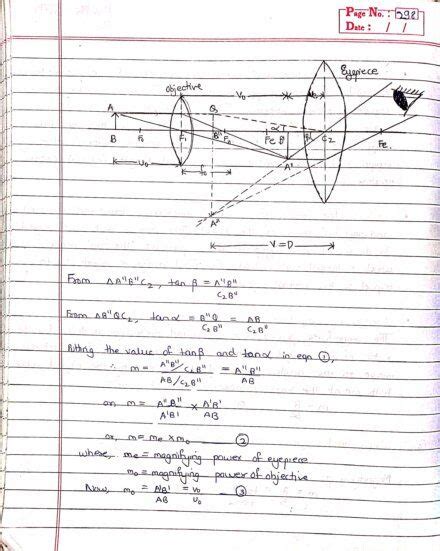 Page No. : 298
Date : / /
Objective
Eyepiece
V₀
A
Q
α
β
B
F₀
C₁
B"
F₀
Fe
B'
C₂
Fe
u₀
f₀
A'
A"
V = D
From ΔA"B"C₂, tan β = A"B" / C₂B"
From ΔB"QC₂, tan α = B"Q / C₂B" = AB / C₂B"
Putting the value of tanβ and tanα in eqn ①,
∴ m = A"B"/C₂B" / AB/C₂B" = A"B" / AB
or, m = A"B" / A'B' × A'B' / AB
or, m = me × m₀ — ②
where, me = magnifying power of eyepiece
m₀ = magnifying power of objective
Now, m₀ = A'B' / AB = v₀ / u₀ — ③